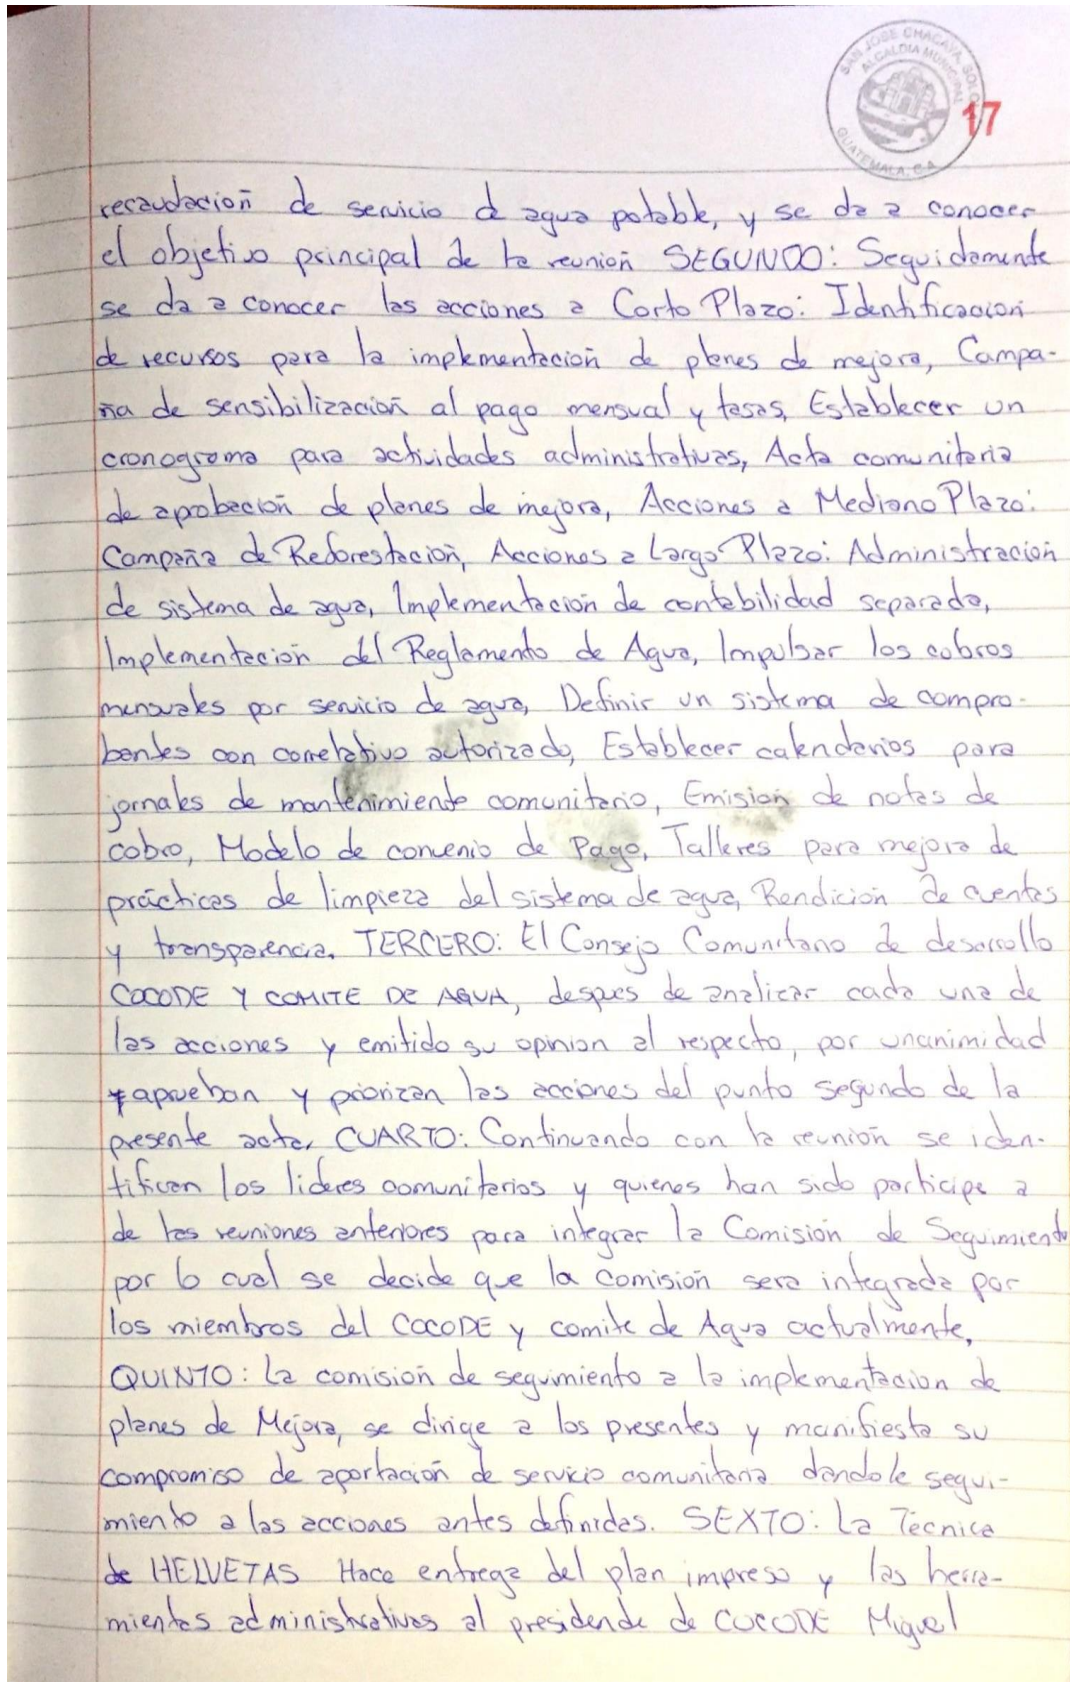 SAN JOSE CHACAYA, SOLOLA
ALCALDIA MUNICIPAL
GUATEMALA, C.A.
17
recaudación de servicio de agua potable, y se da a conocer
el objetivo principal de la reunión SEGUNDO: Seguidamente
se da a conocer las acciones a Corto Plazo: Identificación
de recursos para la implementación de planes de mejora, Campa-
ña de sensibilización al pago mensual y tasas, Establecer un
cronograma para actividades administrativas, Acta comunitaria
de aprobación de planes de mejora, Acciones a Mediano Plazo:
Campaña de Reforestación, Acciones a Largo Plazo: Administración
de sistema de agua, Implementación de contabilidad separada,
Implementación del Reglamento de Agua, Impulsar los cobros
mensuales por servicio de agua, Definir un sistema de compro-
bantes con correlativo autorizado, Establecer calendarios para
jornales de mantenimiento comunitario, Emisión de notas de
cobro, Modelo de convenio de Pago, Talleres para mejora de
prácticas de limpieza del sistema de agua, Rendición de cuentas
y transparencia. TERCERO: El Consejo Comunitario de desarrollo
COCODE Y COMITE DE AGUA, despues de analizar cada una de
las acciones y emitido su opinion al respecto, por unanimidad
aprueban y priorizan las acciones del punto segundo de la
presente acta, CUARTO: Continuando con la reunión se iden-
tifican los lideres comunitarios y quienes han sido participe a
de las reuniones anteriores para integrar la Comisión de Seguimiento
por lo cual se decide que la comisión sera integrada por
los miembros del COCODE y comite de Agua actualmente,
QUINTO: La comisión de seguimiento a la implementacion de
planes de Mejora, se dirige a los presentes y manifiesta su
compromiso de aportación de servicio comunitaria dandole segui-
miento a las acciones antes definidas. SEXTO: La Tecnica
de HELVETAS Hace entrega del plan impreso y las herra-
mientas administrativas al presidende de COCODE Miguel